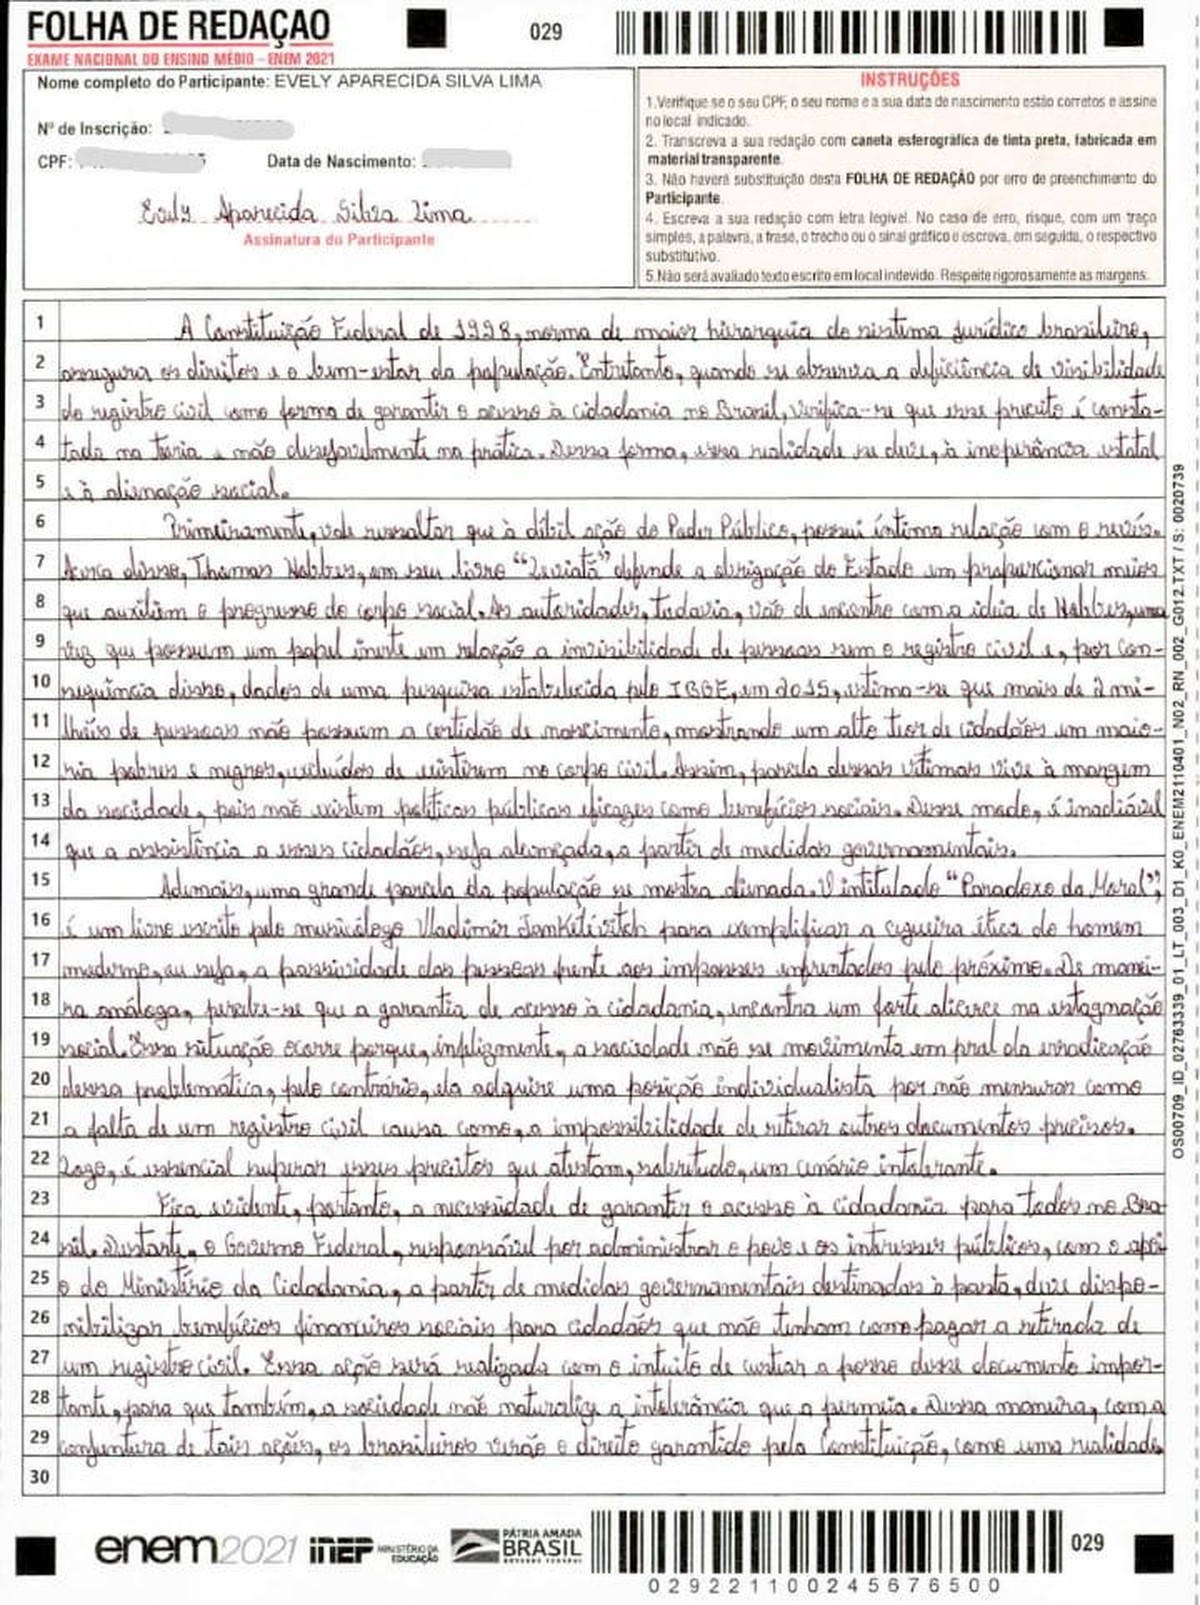 FOLHA DE REDAÇÃO
029
EXAME NACIONAL DO ENSINO MÉDIO - ENEM 2021
Nome completo do Participante: EVELY APARECIDA SILVA LIMA
Nº de Inscrição:
CPF:
Data de Nascimento:
Evely Aparecida Silva Lima
Assinatura do Participante
INSTRUÇÕES
1.Verifique se o seu CPF, o seu nome e a sua data de nascimento estão corretos e assine
no local indicado.
2. Transcreva a sua redação com caneta esferográfica de tinta preta, fabricada em
material transparente.
3. Não haverá substituição desta FOLHA DE REDAÇÃO por erro de preenchimento do
Participante.
4. Escreva a sua redação com letra legível. No caso de erro, risque, com um traço
simples, a palavra, a frase, o trecho ou o sinal gráfico e escreva, em seguida, o respectivo
substitutivo.
5.Não será avaliado texto escrito em local indevido. Respeite rigorosamente as margens.
1 A Constituição Federal de 1998, norma de maior hierarquia do sistema jurídico brasileiro,
2 assegura os direitos e o bem-estar da população. Entretanto, quando se observa a deficiência de visibilidade
3 do registro civil como forma de garantir o acesso à cidadania no Brasil, verifica-se que esse preceito é consta-
4 tado na teoria e não desejavelmente na prática. Dessa forma, essa realidade se deve, à inoperância estatal
5 e à alienação social.
6 Primeiramente, vale ressaltar que à débil ação do Poder Público, possui íntima relação com o revés.
7 Acerca disso, Thomas Hobbes, em seu livro "Leviatã" defende a obrigação do Estado em proporcionar meios
8 que auxiliem o progresso do corpo social. As autoridades, todavia, vão de encontro com a ideia de Hobbes, uma
9 vez que possuem um papel inerte em relação a invisibilidade de pessoas sem o registro civil e, por con-
10 sequência disso, dados de uma pesquisa estabelecida pelo IBGE, em 2015, estima-se que mais de 2 mi-
11 lhões de pessoas não possuem a certidão de nascimento, mostrando um alto teor de cidadãos em maio-
12 ria pobres e negros, excluídos de existirem no corpo civil. Assim, parcela dessas vítimas vive à margem
13 da sociedade, pois não existem políticas públicas eficazes como benefícios sociais. Desse modo, é inadiável
14 que a assistência a esses cidadãos, seja alcançada, a partir de medidas governamentais.
15 Ademais, uma grande parcela da população se mostra alienada. O intitulado "Paradoxo da Moral",
16 é um livro escrito pelo musicólogo Vladimir Jankélévitch para exemplificar a cegueira ética do homem
17 moderno, ou seja, a passividade das pessoas frente aos impasses enfrentados pelo próximo. De manei-
18 ra análoga, percebe-se que a garantia de acesso à cidadania, encontra um forte alicerce na estagnação
19 social. Essa situação ocorre porque, infelizmente, a sociedade não se movimenta em prol da erradicação
20 dessa problemática, pelo contrário, ela adquire uma posição individualista por não mensurar como
21 a falta de um registro civil causa como, a impossibilidade de retirar outros documentos precisos.
22 Logo, é essencial superar esses preceitos que atestam, sobretudo, um cenário intolerante.
23 Fica evidente, portanto, a necessidade de garantir o acesso à cidadania para todos no Bra-
24 sil. Destarte, o Governo Federal, responsável por administrar o povo e os interesses públicos, com o apoi-
25 o do Ministério da Cidadania, a partir de medidas governamentais destinadas à pasta, deve dispo-
26 nibilizar benefícios financeiros sociais para cidadãos que não tenham como pagar a retirada de
27 um registro civil. Essa ação será realizada com o intuito de custear a posse desse documento impor-
28 tante, para que também, a sociedade não naturalize a intolerância que a permeia. Dessa maneira, com a
29 conjuntura de tais ações, os brasileiros verão o direito garantido pela Constituição, como uma realidade.
30
OS00709_ID_02763339_01_LT_003_D1_K0_ENEM2110401_N02_RN_002_G012.TXT / S: 0020739
enem2021
INEP
MINISTÉRIO DA
EDUCAÇÃO
PÁTRIA AMADA
BRASIL
GOVERNO FEDERAL
029
029221100245676500